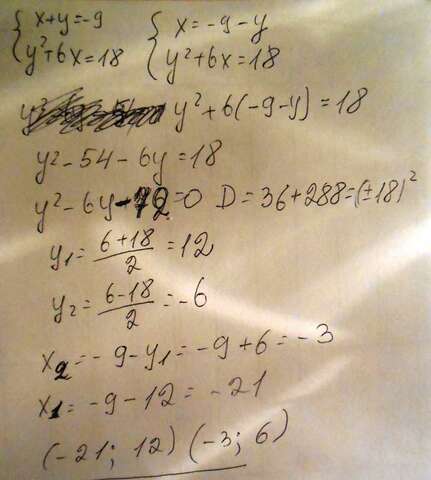 {x+y=-9 {x=-9-y
{y²+6x=18 {y²+6x=18
y²+6(-9-y)=18
y²-54-6y=18
y²-6y-72=0 D=36+288=(±18)²
y₁=(6+18)/2=12
y₂=(6-18)/2=-6
x₂=-9-y₁=-9+6=-3
x₁=-9-12=-21
(-21; 12) (-3; 6)